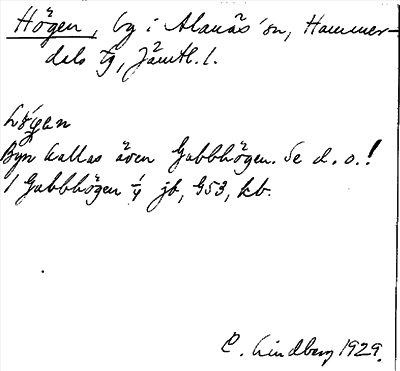 Högen, by i Alanäs sn, Hammer-
dals tg, Jämtl. l.
hö́gen
Byn kallas även Gubbhögen. Se d. o.!
1 Gubbhögen 1/4 jb, 1/53, kb.
C. Lindberg 1929.